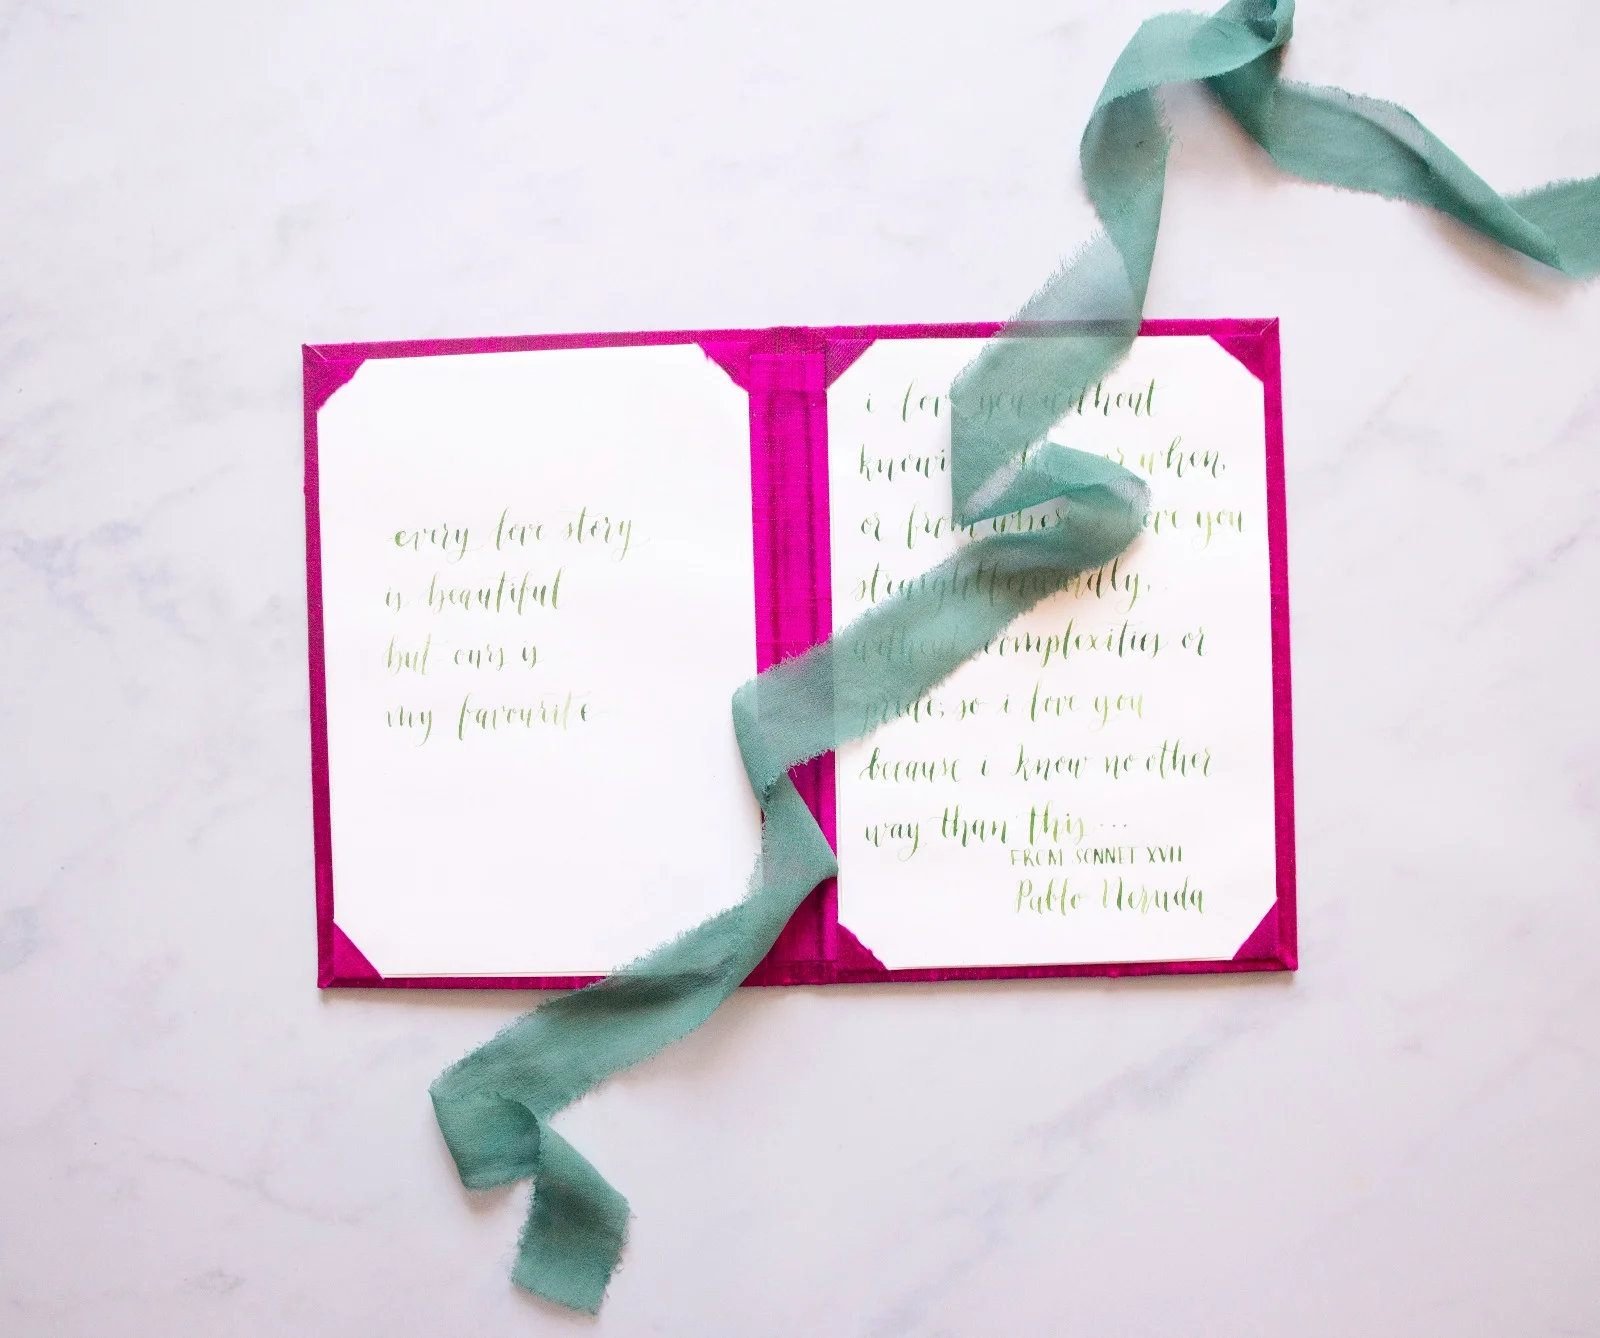 every love story
is beautiful
but ours is
my favourite
i love you without
knowing how, or when,
or from where. i love you
straightforwardly,
without complexities or
pride; so i love you
because i know no other
way than this...
FROM SONNET XVII
Pablo Neruda